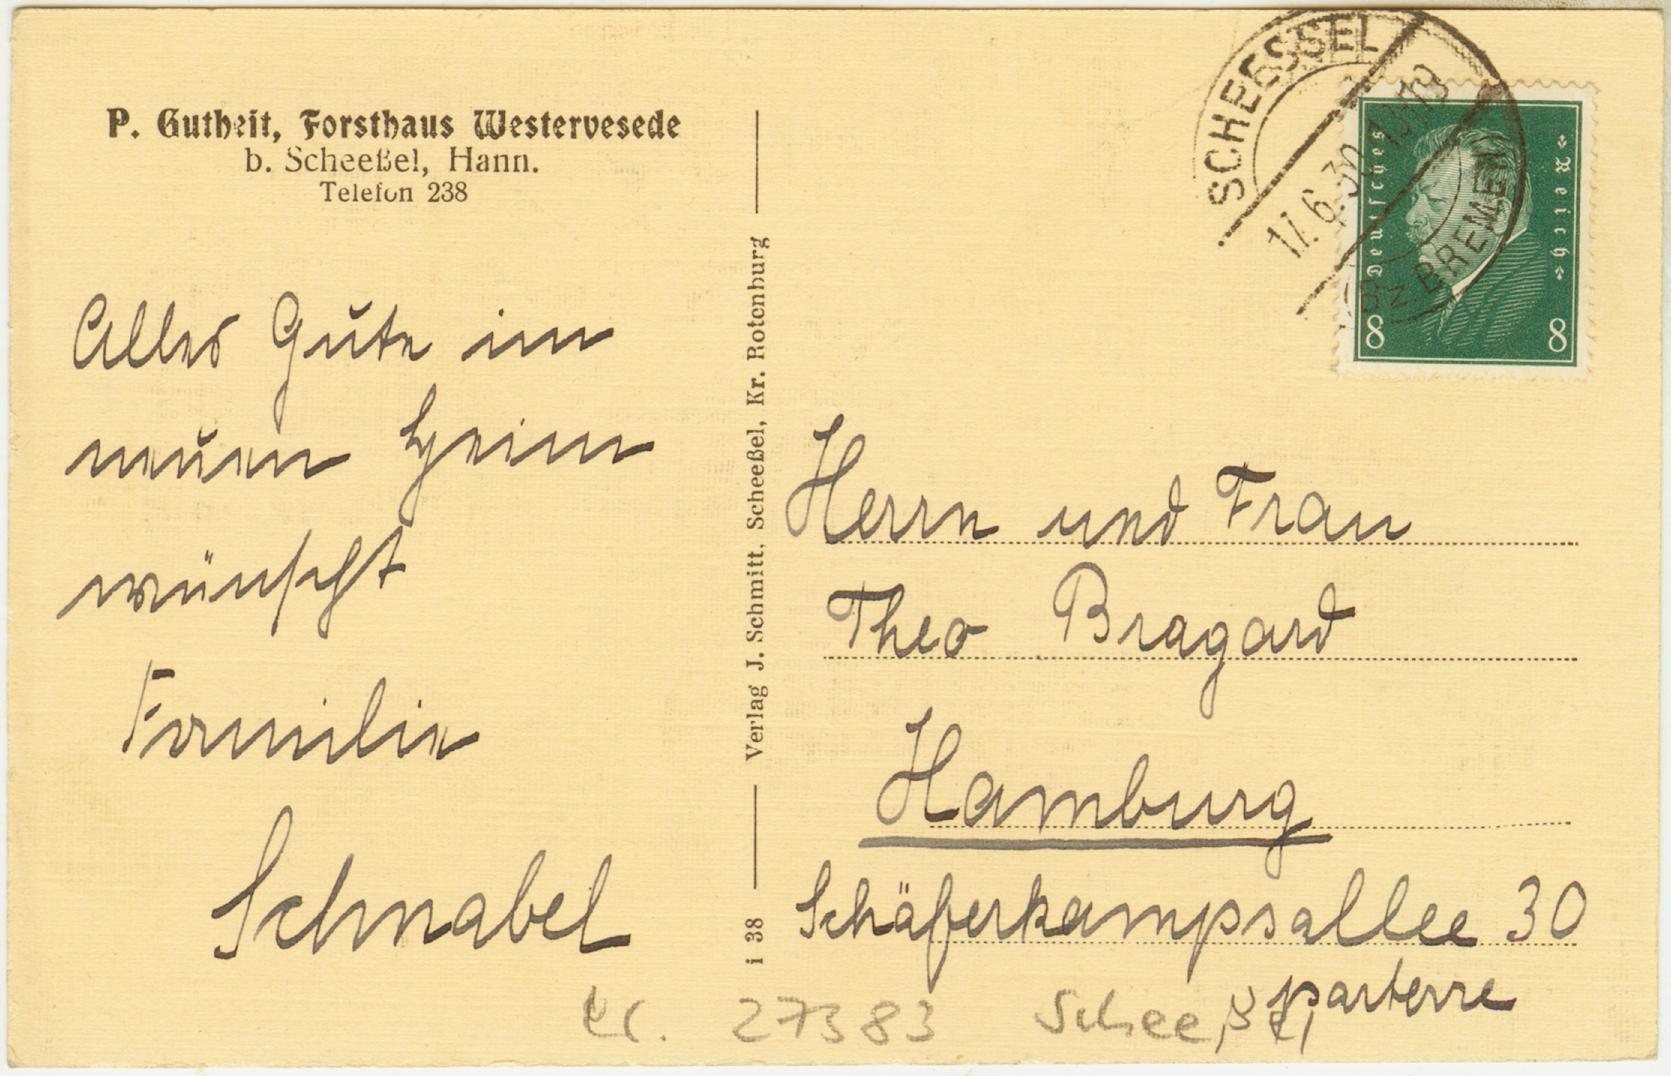 P. Gutheit, Forsthaus Westervesede
b. Scheeßel, Hann.
Telefon 238
Alles Gute im
neuen Heim
wünscht
Familie
Schnabel
i 38 Verlag J. Schmitt, Scheeßel, Kr. Rotenburg
SCHEESSEL
17.6.30.
BZ. BREMEN
Deutsches Reich
8 8
Herrn und Frau
Theo Bragard
Hamburg
Schäferkampsallee 30
parterre
27383 Scheeßel